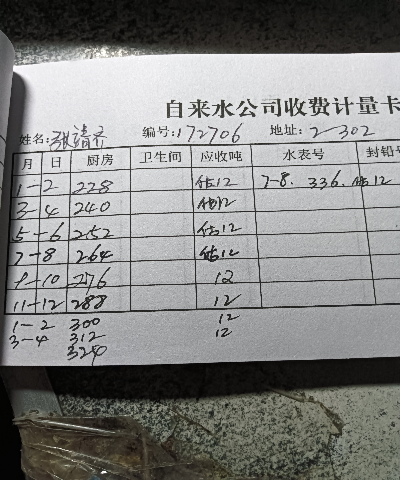 自来水公司收费计量卡
姓名:张清齐 编号:172706 地址:2-302
月 日 厨房 卫生间 应收吨 水表号 封铅号
1-2 228 估12 7-8. 336. 估12
3-4 240 估12
5-6 252 估12
7-8 264 估12
9-10 276 12
11-12 288 12
1-2 300 12
3-4 312 12
324